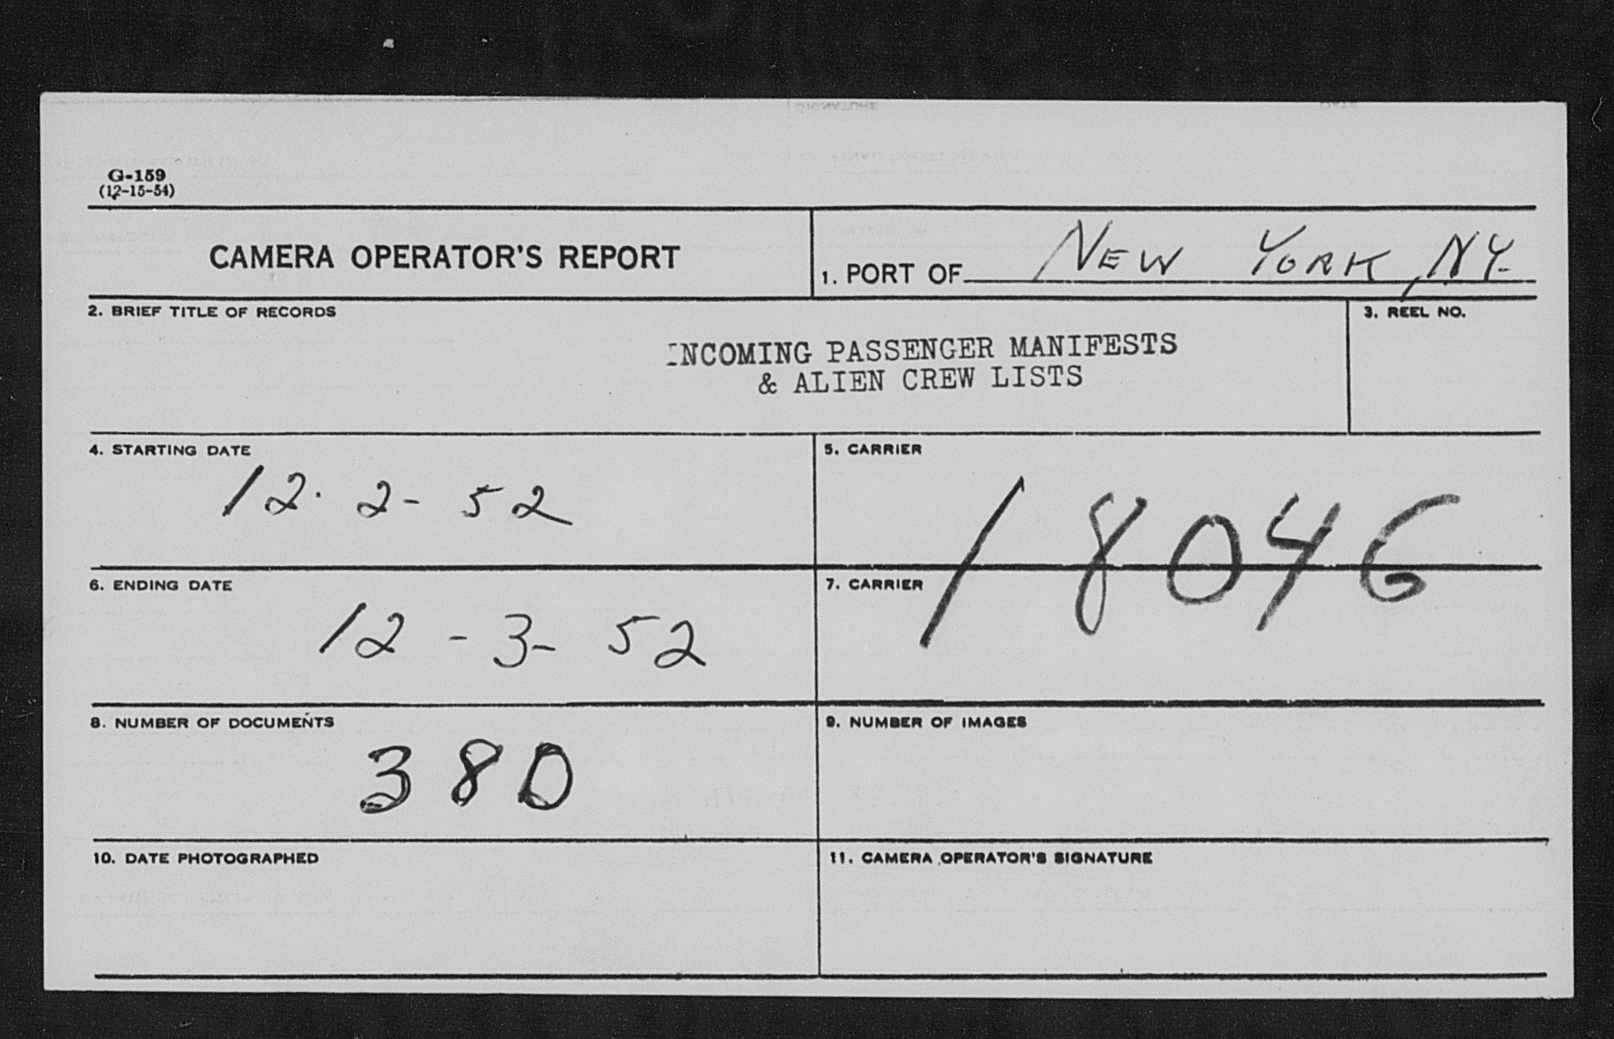 G-159
(12-15-54)
CAMERA OPERATOR'S REPORT
1. PORT OF NEW YORK, NY.
2. BRIEF TITLE OF RECORDS
3. REEL NO.
INCOMING PASSENGER MANIFESTS
& ALIEN CREW LISTS
4. STARTING DATE
12. 2- 52
5. CARRIER
18046
6. ENDING DATE
12 - 3- 52
7. CARRIER
8. NUMBER OF DOCUMENTS
380
9. NUMBER OF IMAGES
10. DATE PHOTOGRAPHED
11. CAMERA OPERATOR'S SIGNATURE